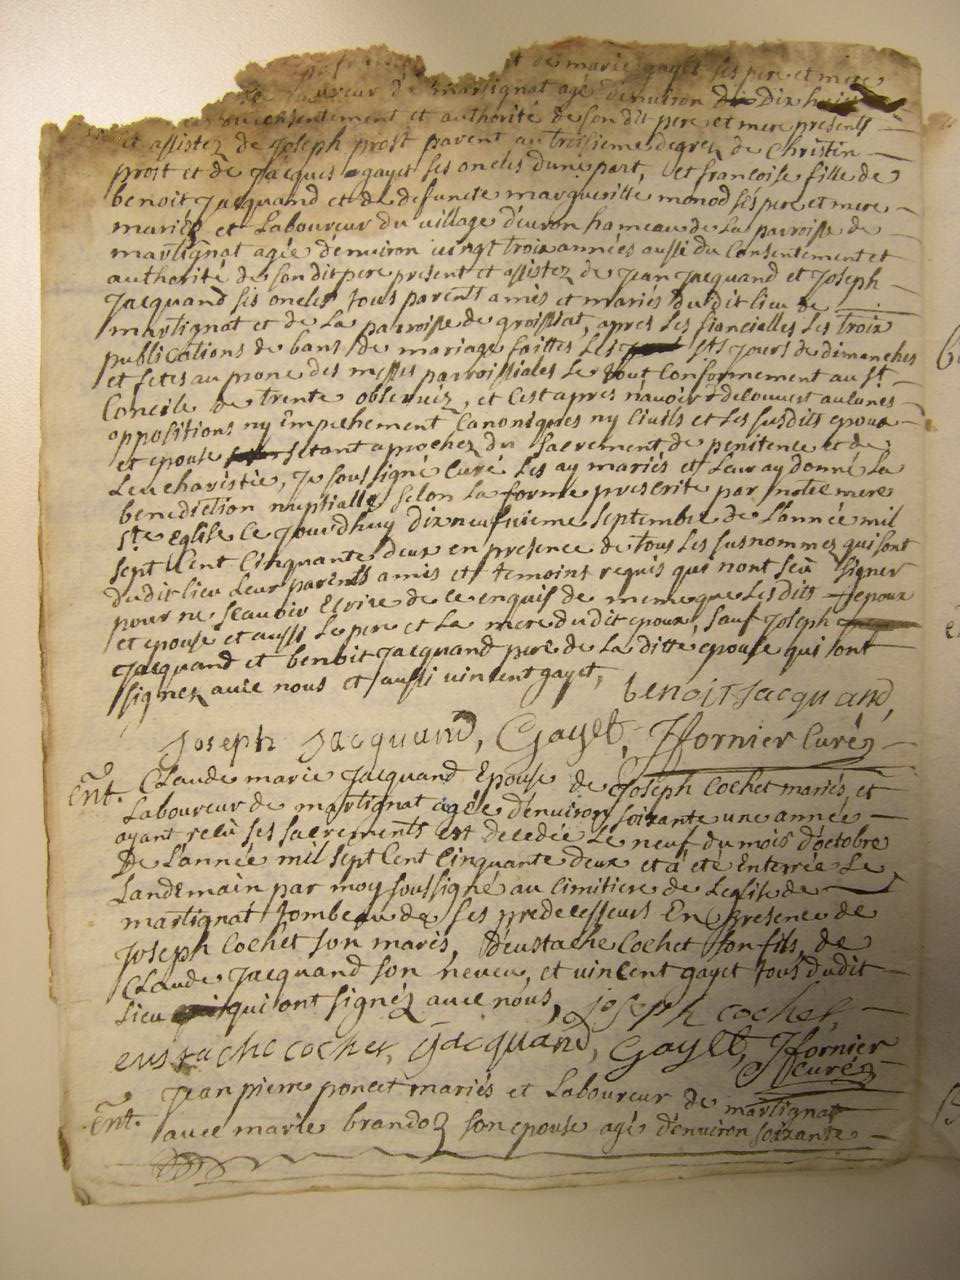 de marie gayet ses pere et mere
laboureur de martignat agé denviron Dix huit
consentement et authorité de son dit pere et mere presents
et assistez de Joseph prost parent au troisieme degrez de Christin
prost et de Jacques gayet ses oncles dune part, et francoise fille de
benoit Jacquand et de defuncte margueritte monod ses pere et mere
mariés et Laboureur du village d'evron hameau de La parroisse de
martignat agée denviron vingt trois années aussi du Consentement et
authorité de son dit pere present et assistez de Jean Jacquand et Joseph
Jacquand ses oncles tous parents amis et mariés du dit lieu de
martignat et de La parroisse de groissiat, apres Les fiancialles Les trois
publications de bans de mariage faittes Les sts Jours de dimanches
et fetes au prone des messes parroissiales Le tout Conformement au st
Concile de trente observéz, et C'est apres n'avoir decouvert aulunes
oppositions ny impechement Canoniques ny Civils et Les susdits epoux
et epouse setant aprochez du sacrement de penitence et de
Leucharistie, Je soussigné Curé Les ay mariés et Leur ay donné La
benediction nuptialle selon La forme prescrite par notre mere
ste Eglise Ce Jourdhuy dix neufvieme septembre de L'année mil
sept Cent Cinquante deux en presence de tous Les susnommez qui sont
du dit lieu Leur parents amis et temoins requis qui nont seu signer
pour ne scavoir Ecrire de ce enquis de meme que Les dits epoux
et epouse et aussi Le pere et La mere du dit epoux, sauf Joseph
Jacquand et benoit Jacquand pere de La ditte epouse qui sont
signez avec nous et aussi vincent gayet,
benoit Jacquand,
Joseph Jacquand, Gayet, JFornier Curé
Ent. Claude marie Jacquand Epouse de Joseph Cochet mariés, et
Laboureur de martignat agée d'environ soixante une année
ayant reçu ses sacrements est decedée Le neuf du mois d'octobre
De L'année mil sept Cent Cinquante deux et à été Enterrée Le
Landemain par moy soussigné au Cimitiere de Leglise de
martignat tombeau de ses predecesseurs En presence de
Joseph Cochet son maris, d'eustache Cochet son fils, de
Claude Jacquand son neveu, et vincent gayet tous dudit
Lieu qui ont signéz avec nous, joseph cochet,
eustache cochet, Jacquand, Gayet, JFornier
Curé
Ent. Jean pierre poncet mariés et Laboureur de martignat
avec marie brandoz son epouse agé d'environ soixante